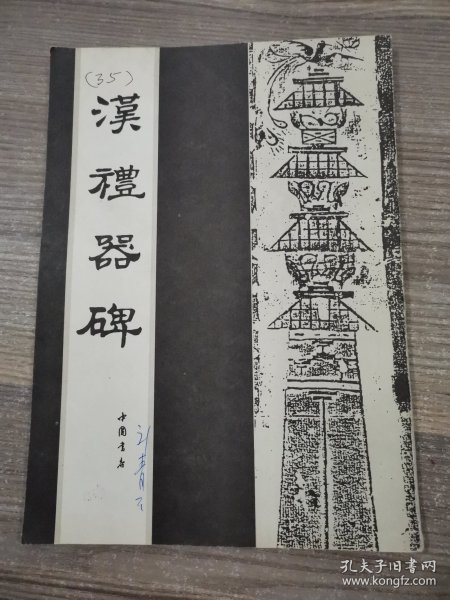 (35)
漢禮器碑
中国书店
孔夫子旧书网
www.kongfz.com